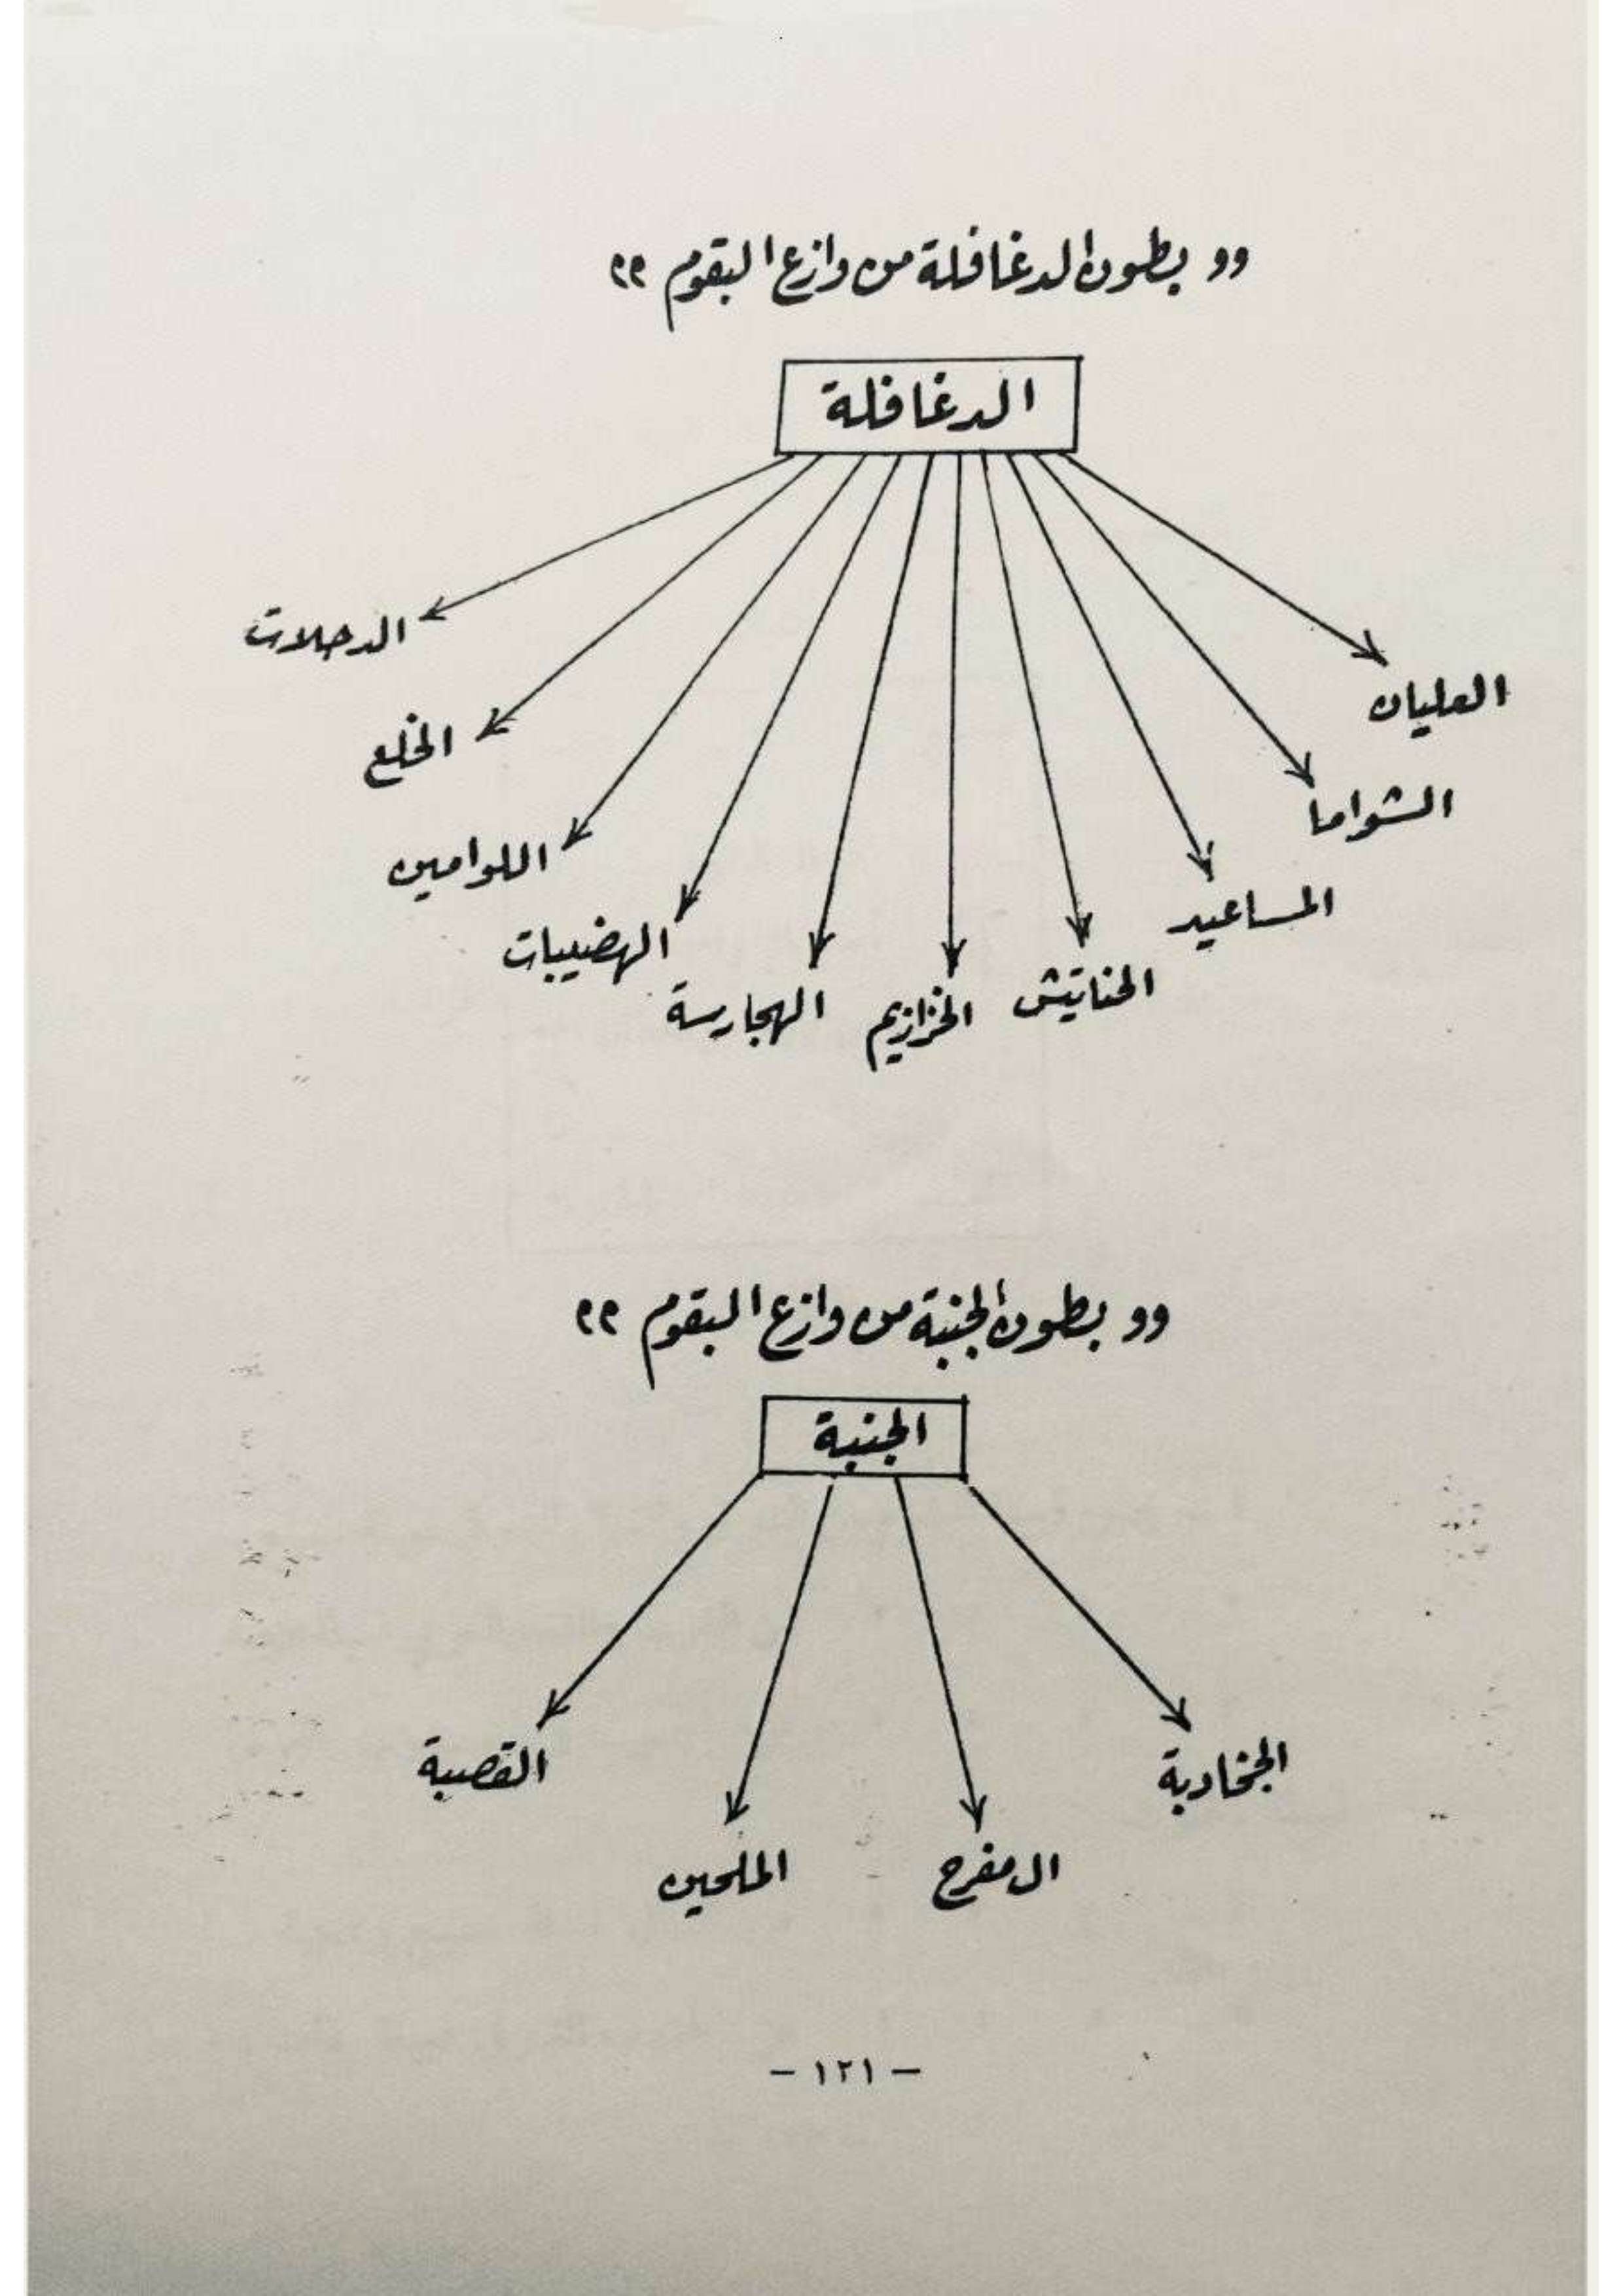 " بطون الدغافلة من وازع البقوم "
الدغافلة
العليان
الشواما
المساعيد
الحناتيش
الخزازيم
الهجارسة
الهضيبات
اللوامين
الخلع
الدحلات
" بطون الجنبة من وازع البقوم "
الجنبة
الجخادبة
ال مفرح
الملحين
القصبة
- ١٢١ -